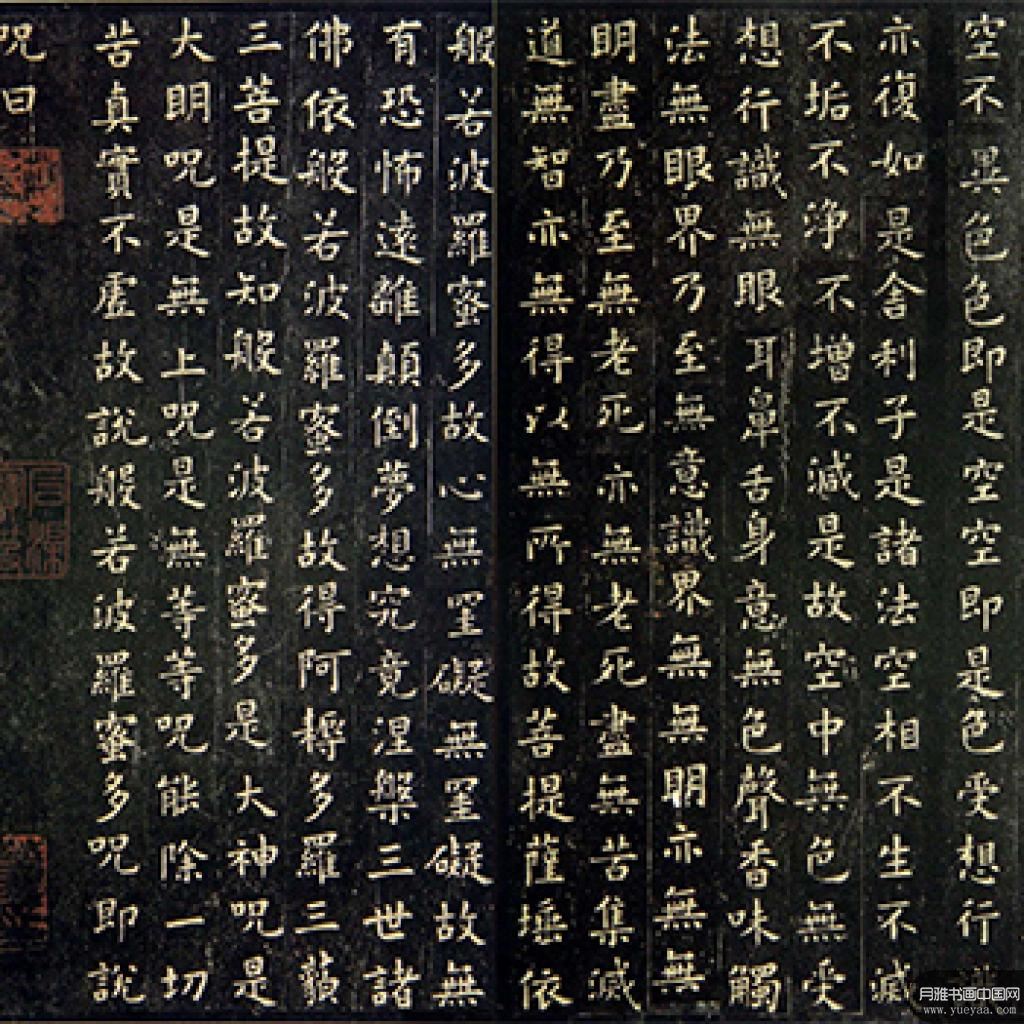 空不異色色即是空空即是色受想行識
亦復如是舍利子是諸法空相不生不滅
不垢不淨不增不減是故空中無色無受
想行識無眼耳鼻舌身意無色聲香味觸
法無眼界乃至無意識界無無明亦無無
明盡乃至無老死亦無老死盡無苦集滅
道無智亦無得以無所得故菩提薩埵依
般若波羅蜜多故心無罣礙無罣礙故無
有恐怖遠離顛倒夢想究竟涅槃三世諸
佛依般若波羅蜜多故得阿耨多羅三藐
三菩提故知般若波羅蜜多是大神呪是
大明呪是無上呪是無等等呪能除一切
苦真實不虛故說般若波羅蜜多呪即說
呪曰
月雅书画中国网
www.yueyaa.com